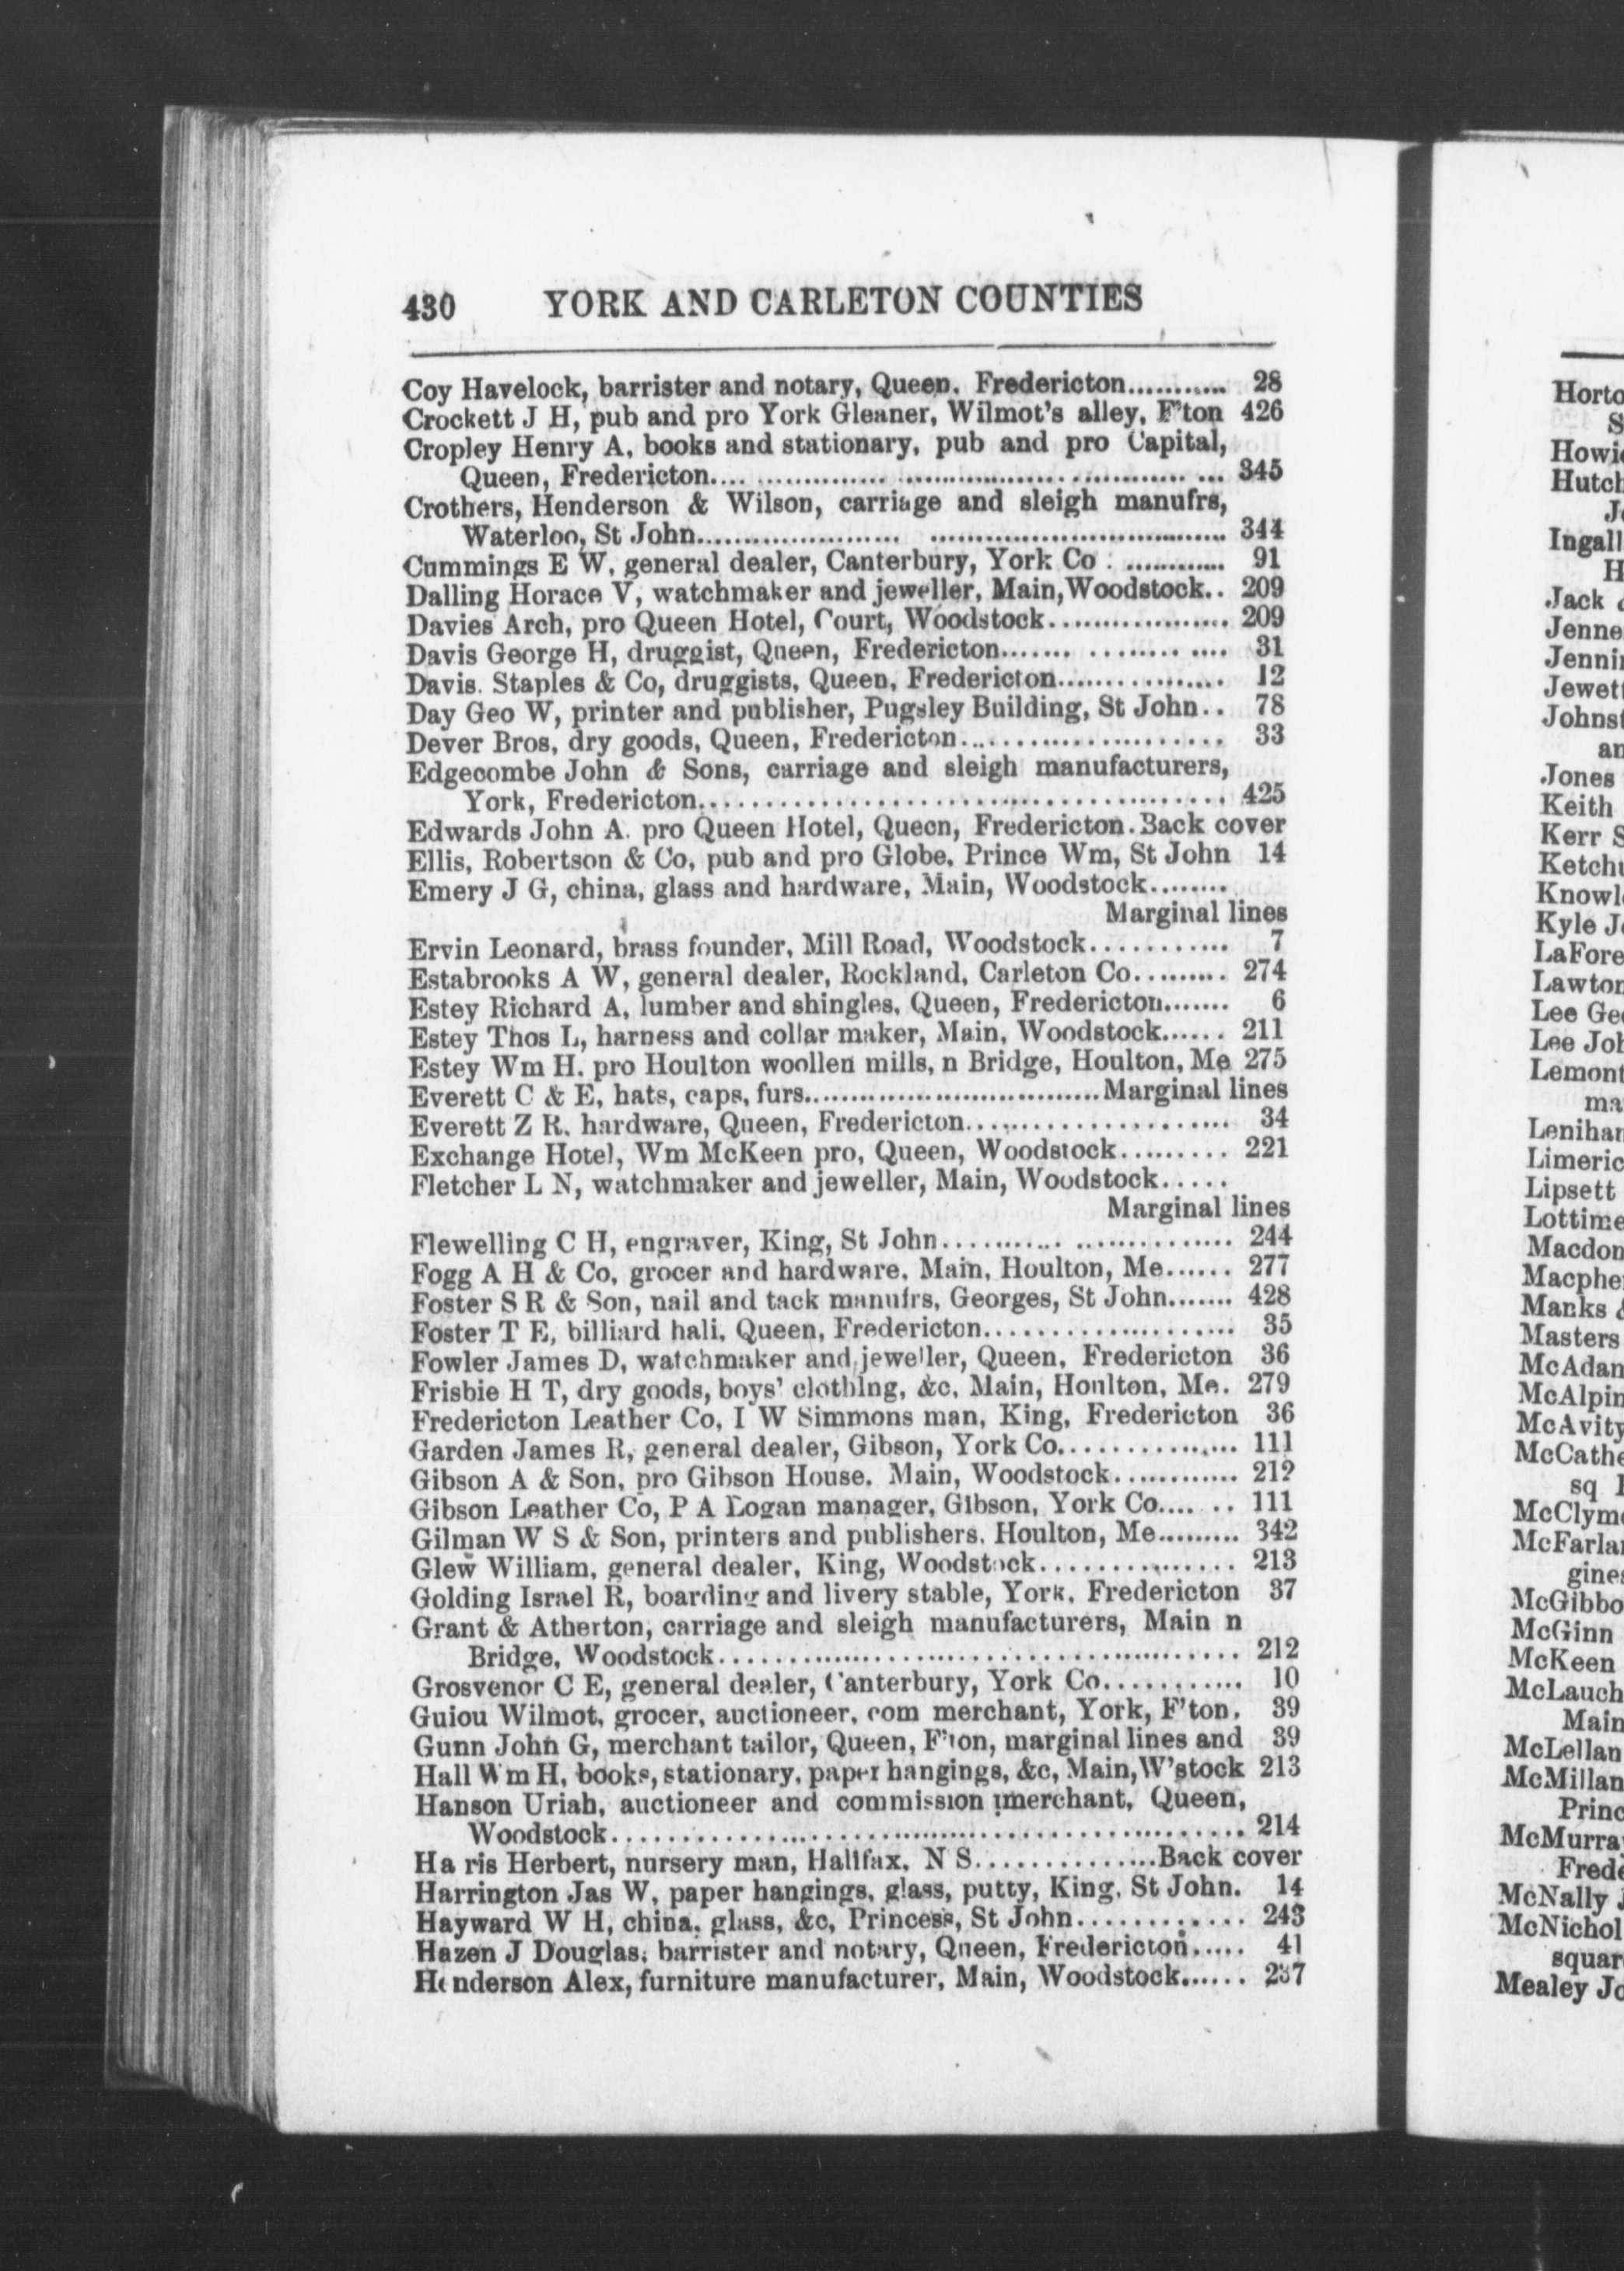 430 YORK AND CARLETON COUNTIES
Coy Havelock, barrister and notary, Queen. Fredericton........... 28
Crockett J H, pub and pro York Gleaner, Wilmot's alley, F'ton 426
Cropley Henry A, books and stationary, pub and pro Capital,
Queen, Fredericton.... ............... ..................... ............ ... 345
Crothers, Henderson & Wilson, carriage and sleigh manufrs,
Waterloo, St John...................... ................................ 344
Cummings E W, general dealer, Canterbury, York Co . ............ 91
Dalling Horace V, watchmaker and jeweller, Main, Woodstock.. 209
Davies Arch, pro Queen Hotel, Court, Woodstock.................. 209
Davis George H, druggist, Queen, Fredericton....... ......... .... 31
Davis. Staples & Co, druggists, Queen, Fredericton................ 12
Day Geo W, printer and publisher, Pugsley Building, St John.. 78
Dever Bros, dry goods, Queen, Fredericton....................... 33
Edgecombe John & Sons, carriage and sleigh manufacturers,
York, Fredericton........................................ 425
Edwards John A. pro Queen Hotel, Queen, Fredericton.Back cover
Ellis, Robertson & Co, pub and pro Globe, Prince Wm, St John 14
Emery J G, china, glass and hardware, Main, Woodstock........
Marginal lines
Ervin Leonard, brass founder, Mill Road, Woodstock........... 7
Estabrooks A W, general dealer, Rockland, Carleton Co......... 274
Estey Richard A, lumber and shingles, Queen, Fredericton....... 6
Estey Thos L, harness and collar maker, Main, Woodstock...... 211
Estey Wm H. pro Houlton woollen mills, n Bridge, Houlton, Me 275
Everett C & E, hats, caps, furs.................................Marginal lines
Everett Z R. hardware, Queen, Fredericton..................... 34
Exchange Hotel, Wm McKeen pro, Queen, Woodstock......... 221
Fletcher L N, watchmaker and jeweller, Main, Woodstock.....
Marginal lines
Flewelling C H, engraver, King, St John........... ............... 244
Fogg A H & Co, grocer and hardware, Main, Houlton, Me...... 277
Foster S R & Son, nail and tack manufrs, Georges, St John....... 428
Foster T E, billiard hall, Queen, Fredericton.................... 35
Fowler James D, watchmaker and jeweller, Queen, Fredericton 36
Frisbie H T, dry goods, boys' clothing, &c, Main, Houlton, Me. 279
Fredericton Leather Co, I W Simmons man, King, Fredericton 36
Garden James R, general dealer, Gibson, York Co............... 111
Gibson A & Son, pro Gibson House. Main, Woodstock............ 212
Gibson Leather Co, P A Logan manager, Gibson, York Co.... .. 111
Gilman W S & Son, printers and publishers, Houlton, Me......... 342
Glew William, general dealer, King, Woodstock................ 213
Golding Israel R, boarding and livery stable, York, Fredericton 37
Grant & Atherton, carriage and sleigh manufacturers, Main n
Bridge, Woodstock........................................ 212
Grosvenor C E, general dealer, Canterbury, York Co........... 10
Guiou Wilmot, grocer, auctioneer, com merchant, York, F'ton. 39
Gunn John G, merchant tailor, Queen, F'ton, marginal lines and 39
Hall Wm H, books, stationary, paper hangings, &c, Main, W'stock 213
Hanson Uriah, auctioneer and commission merchant, Queen,
Woodstock................................................ 214
Ha ris Herbert, nursery man, Halifax, N S...............Back cover
Harrington Jas W, paper hangings, glass, putty, King, St John. 14
Hayward W H, china, glass, &c, Princess, St John............. 243
Hazen J Douglas, barrister and notary, Queen, Fredericton..... 41
Henderson Alex, furniture manufacturer, Main, Woodstock...... 237
Horto
S
Howi
Hutch
J
Ingall
H
Jack
Jenne
Jenni
Jewet
Johns
an
Jones
Keith
Kerr S
Ketch
Knowl
Kyle J
LaFore
Lawton
Lee Ge
Lee Joh
Lemont
ma
Lenihan
Limeric
Lipsett
Lottime
Macdon
Macphe
Manks
Masters
McAdan
McAlpin
McAvity
McCathe
sq
McClym
McFarla
gines
McGibbo
McGinn
McKeen
McLauch
Main
McLellan
McMillan
Princ
McMurra
Frede
McNally J
McNichol
squar
Mealey Jo